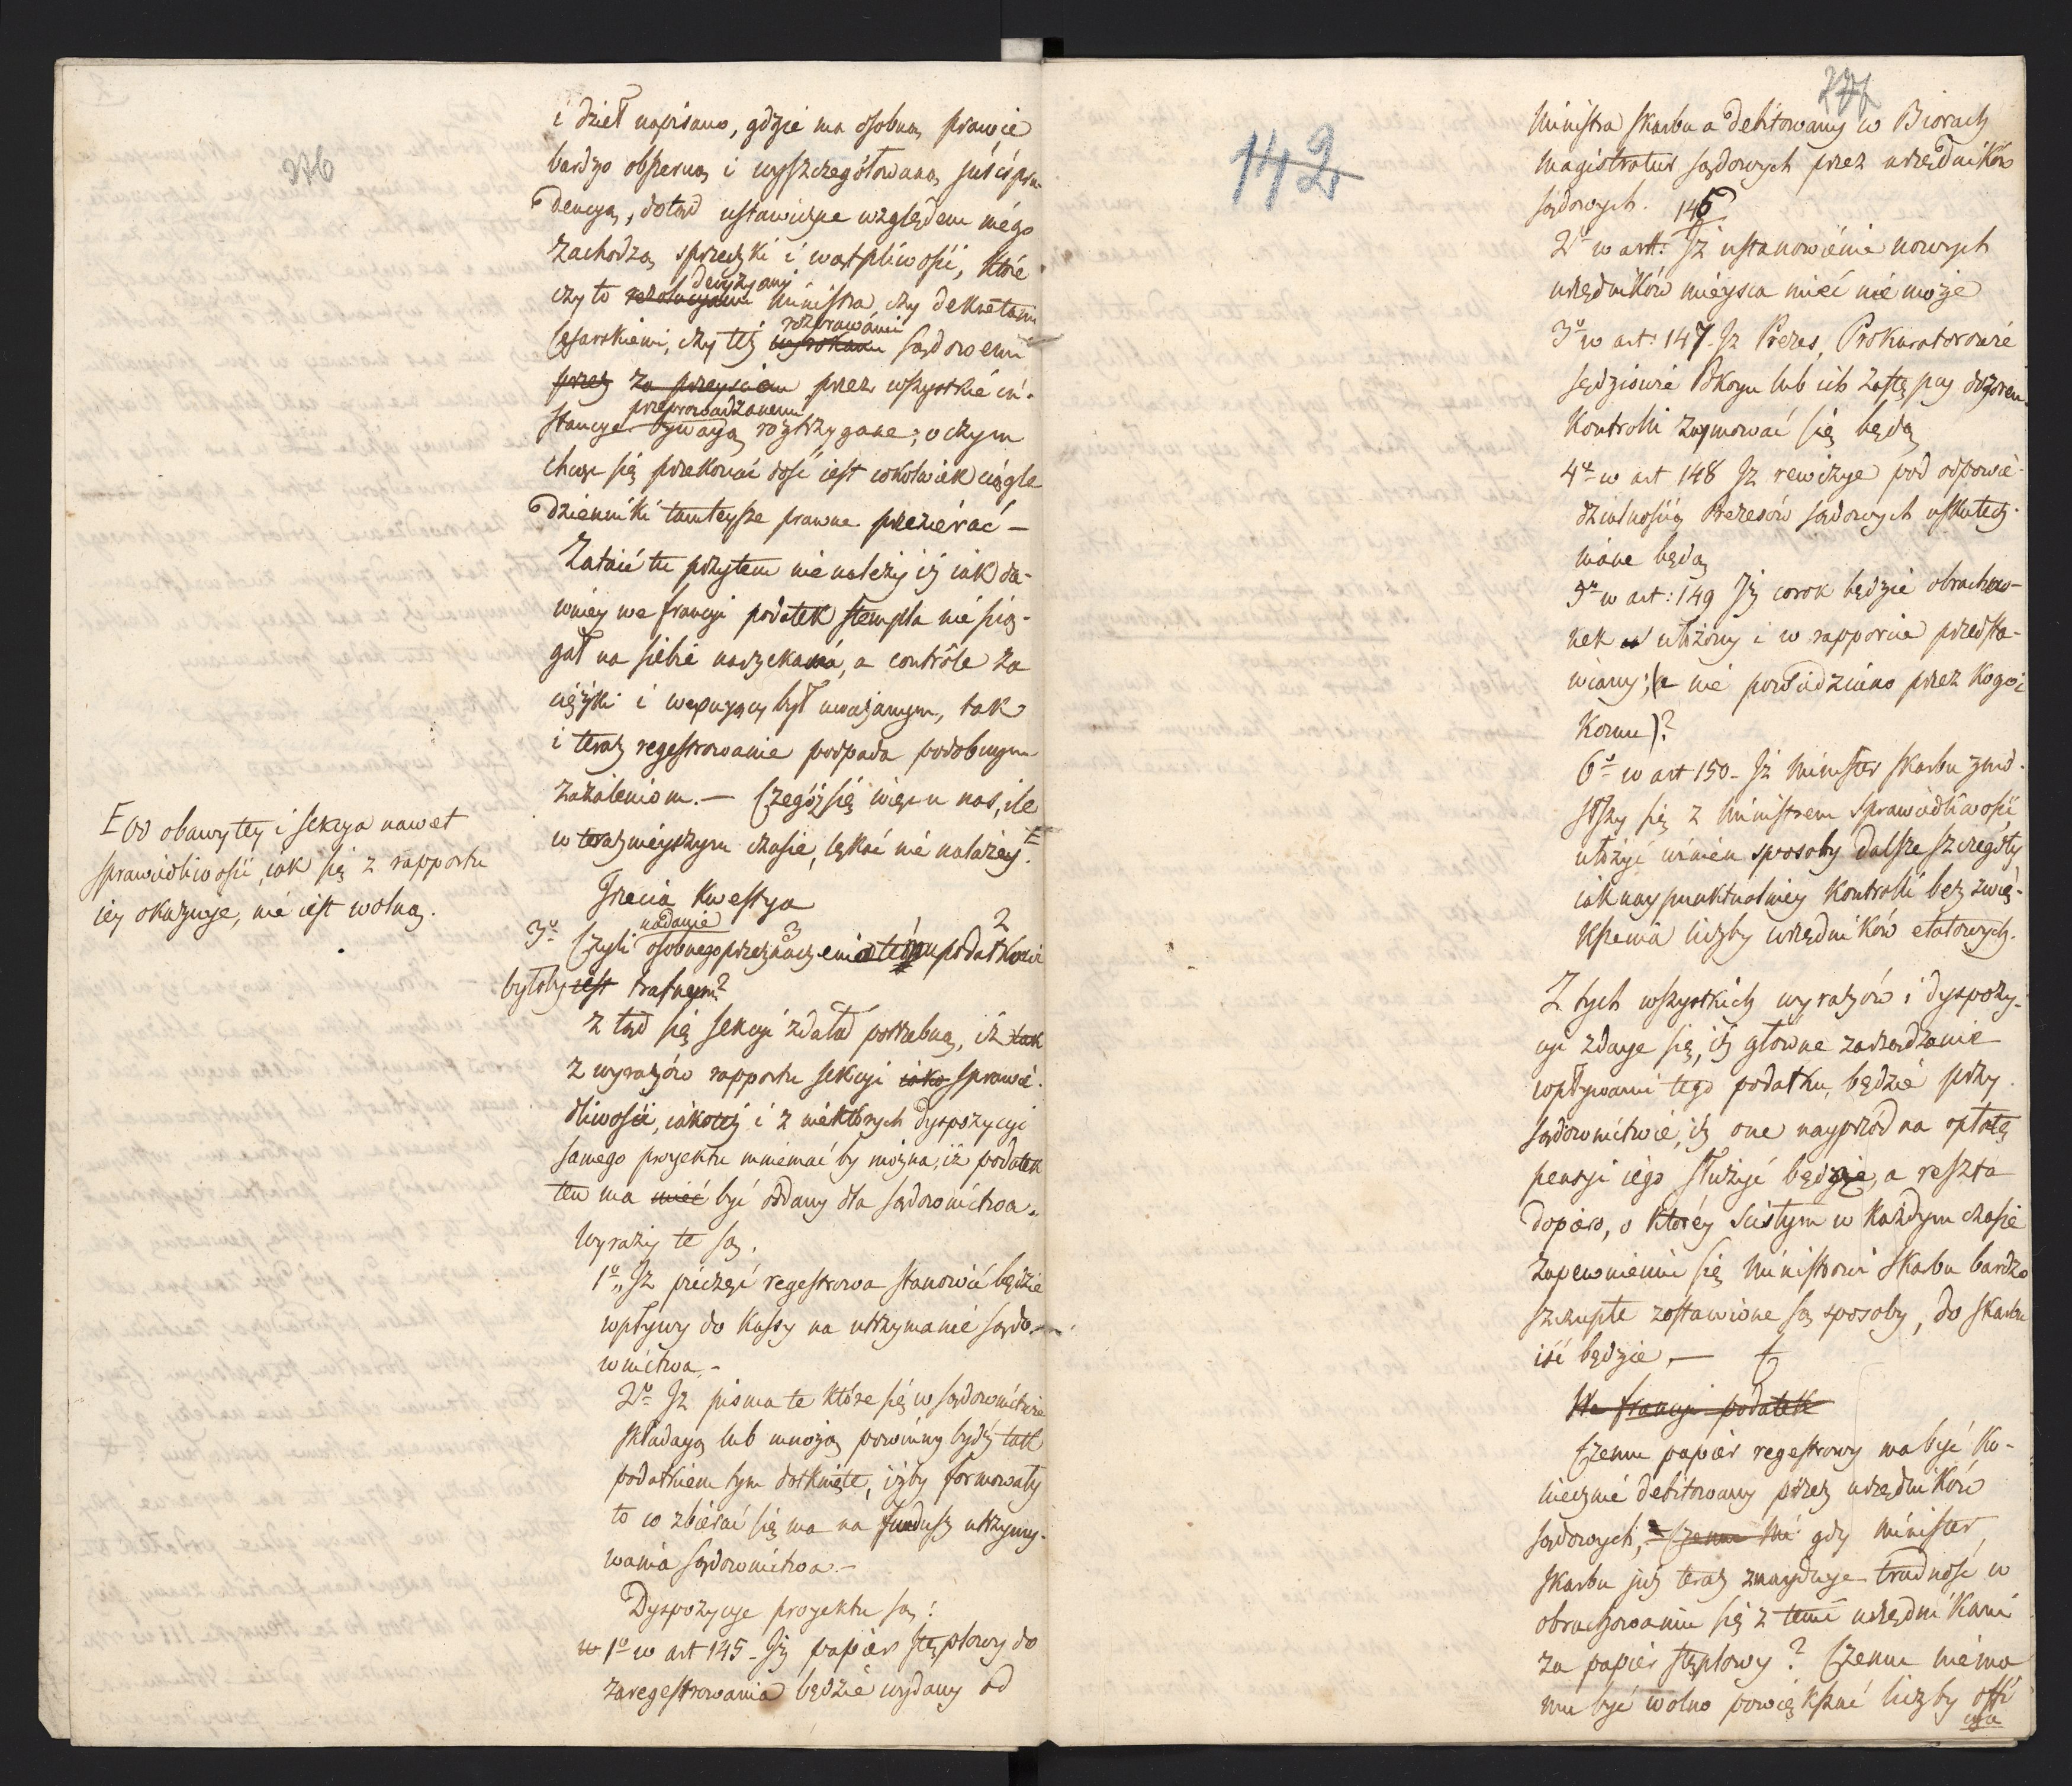 276
i dzieł napisano, gdzie ma osobną prawie
bardzo obszerną i wyszczegółowaną juścipru-
dencyą, dotąd ustawiczne względem niego
zachodzą sprzeczki i wątpliwości, które
czy to rezolucyami decyzyami Ministra, czy dekretami
Cesarskiemi, czy też wyrokami rozprawami sądowemi
przez za przeysciem przez wszystkie in-
stancye przeprowadzanemi bywaią roztrzygane; o czym
chcąc się przekonać dość iest cokolwiek ciągle
dzienniki tamteysze prawne przezierać —
Zataić tu przytem nie należy iż iak da-
wniey we francyi podatek stempla nie ścią-
gał na siebie narzekania, a contrôle za
ciężki i wexuiący był uważanym, tak
i teraz regestrowanie podpada podobnym
zażaleniom. — Czegóż się więc u nas, ile
w teraźnieyszym czasie, lękać nie należy.
Od obawy tey i sekcya nawet
sprawiedliwości, iak się z rapportu
iey okazuie, nie iest wolną.
Trzecia Kwestya
3o Czyli nadanie osobnego przeznaczenia 3 temu podatkowi 2
byłoby iest trafnem?
Z tąd się sekcyi zdała potrzebną, iż tak
z wyrazów rapportu sekcyi iako sprawie-
dliwości, iakoteż i z niektórych dyspozycyi
samego proyektu mniemać by można, iż podatek
ten ma mieć być oddany dla sądownictwa.
Wyrazy te są.
1o „Iż pieczęć regestrowa stanowić będzie
wpływy do kassy na utrzymanie sądo-
wnictwa. -
2o Iż pisma te które się w sądownictwie
składaią lub mnożą powinny bydź tak
podatkiem tym dotknięte, iżby formowały
to co zbierać się ma na fundusz utrzymy-
wania sądownictwa. -
Dyspozycye proyektu są:
w 1o w art 145 - Iż papier stęplowy do
zaregestrowania będzie wydany od
142
277
Ministra skarbu a debitowany w Biorach
Magistratur sądowych przez urzędników
sądowych.
2o w art: 146 Iż ustanowienie nowych
urzędników mieysca mieć nie może
3o w art: 147. Iż Prezes, Prokuratorowie
sędziowie Pokoyu lub ich zastępcy dozorem
kontrolli zaymować się będą
4o w art 148 Iż rewizye pod odpowie-
dzialnością Prezesów sądowych uskutecz-
niane będą
5o w art: 149 Iż corok będzie obrachu-
nek ułożony i w rapporcie przedsta-
wiany; (a nie powiedziano przez kogo i
komu)?
6o w art 150 - Iż Minister skarbu znió-
słszy się z Ministrem sprawiedliwości
ułożyć winien sposoby dalsze szczegóły
iak naypunktualniey kontrolli bez zwię-
kszenia liczby urzędników etatowych.
Z tych wszystkich wyrazów i dyspozy-
cyi zdaye się, iż główne zarządzanie
wpływami tego podatku, będzie przy
sądownictwie, iż one nayprzód na opłatę
pensyi iego służyć będzie, a reszta
dopiero, o którey scisłym w każdym czasie
zapewnieniu się Ministrowi skarbu bardzo
szczupłe zostawione są sposoby, do skarbu
iść będzie, —
We francyi podatek
Czemu papier regestrowy ma być ko-
niecznie debitowany przez urzędników
sądowych, Czemu Mi gdy Minister
skarbu już teraz znayduye trudność w
obrachowaniu się z temi urzędnikami
za papier stęplowy? Czemu niema
mu być wolno powiększać liczby offi
cya